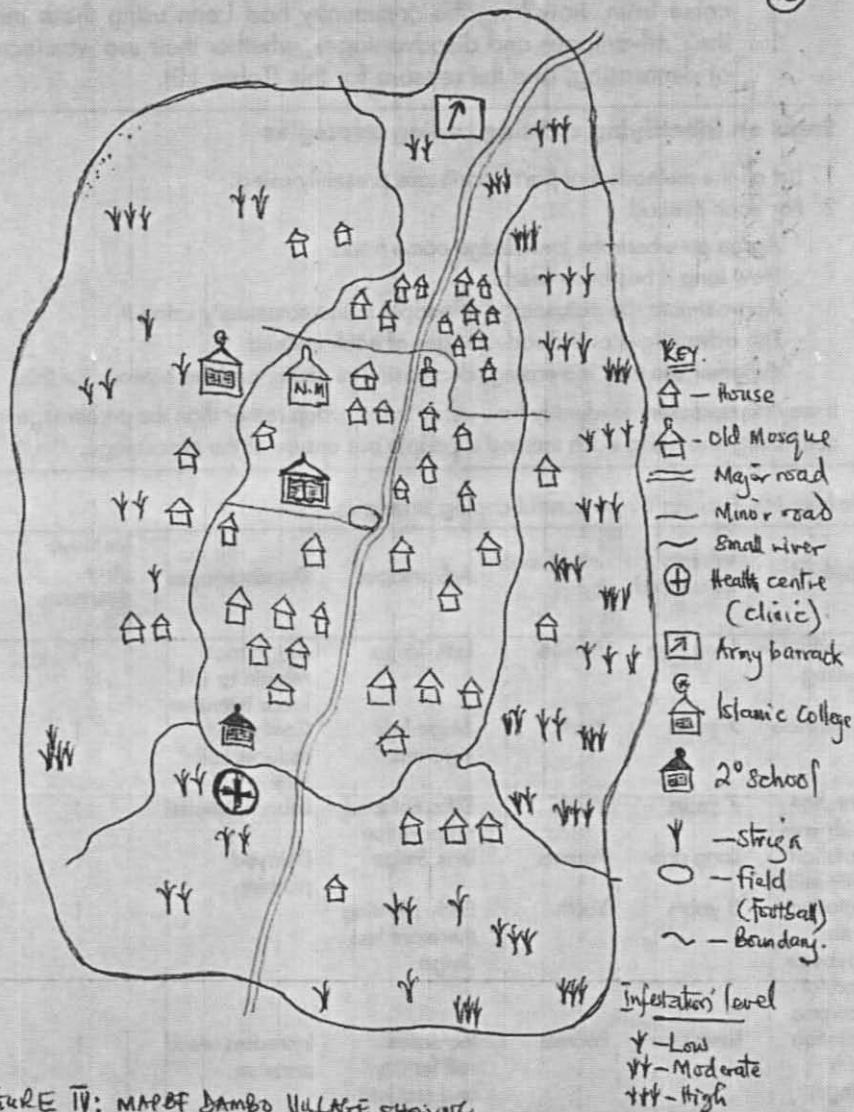 N.M
KEY.
House
Old Mosque
Major road
Minor road
Small river
Health centre
(clinic)
Army barrack
Islamic College
2° School
striga
field
(Football)
Boundary.
Infestation level
Low
Moderate
High
URE IV: MAP OF DAMBO VILLAGE SHOWING